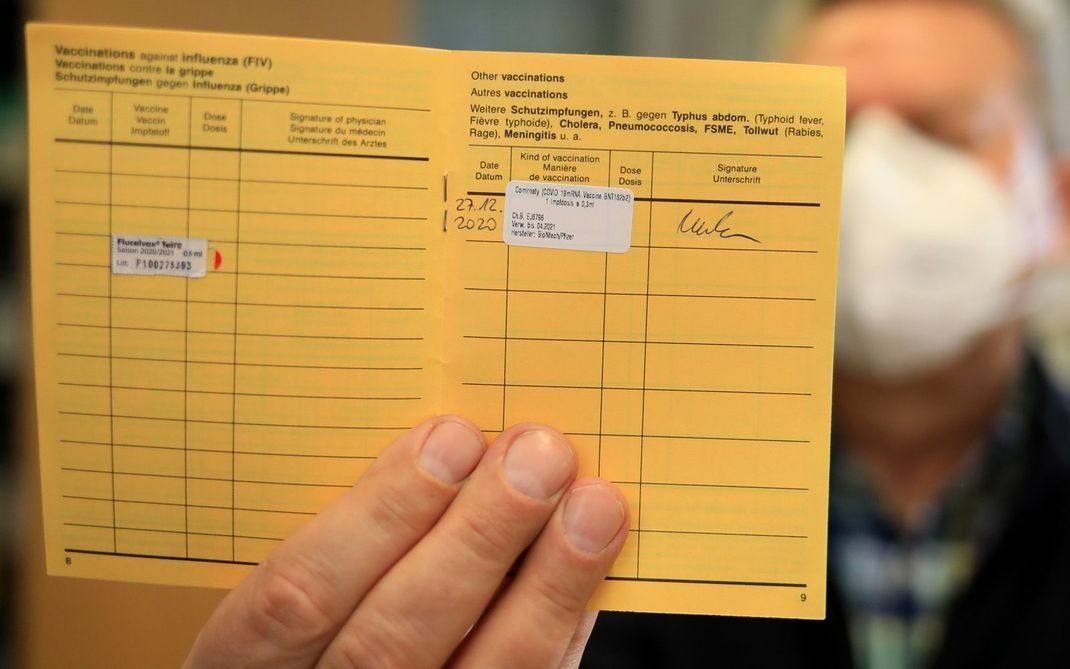 Vaccinations against Influenza (FIV)
Vaccinations contre la grippe
Schutzimpfungen gegen Influenza (Grippe)
Date
Datum
Vaccine
Vaccin
Impfstoff
Dose
Dosis
Signature of physician
Signature du médecin
Unterschrift des Arztes
Flucelvax® Tetra
Saison 2020/2021 0,5 ml
Lot: P100275383
6
Other vaccinations
Autres vaccinations
Weitere Schutzimpfungen, z. B. gegen Typhus abdom. (Typhoid fever,
Fièvre typhoide), Cholera, Pneumococcosis, FSME, Tollwut (Rabies,
Rage), Meningitis u. a.
Date
Datum
Kind of vaccination
Manière
de vaccination
Dose
Dosis
Signature
Unterschrift
27.12.
2020
Comirnaty (COVID 19mRNA Vaccine BNT162b2)
1 Impfdosis a 0,3ml
Ch.B. EJ6796
Verw. bis 04.2021
Hersteller: BioNtech/Pfizer
9